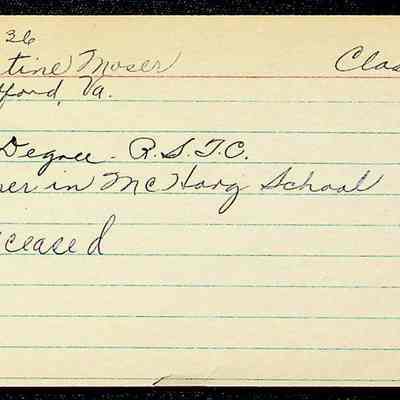 36
tine Moser Clas
ford, Va.
Degree - R.S.T.C.
er in McHarg School
ceased